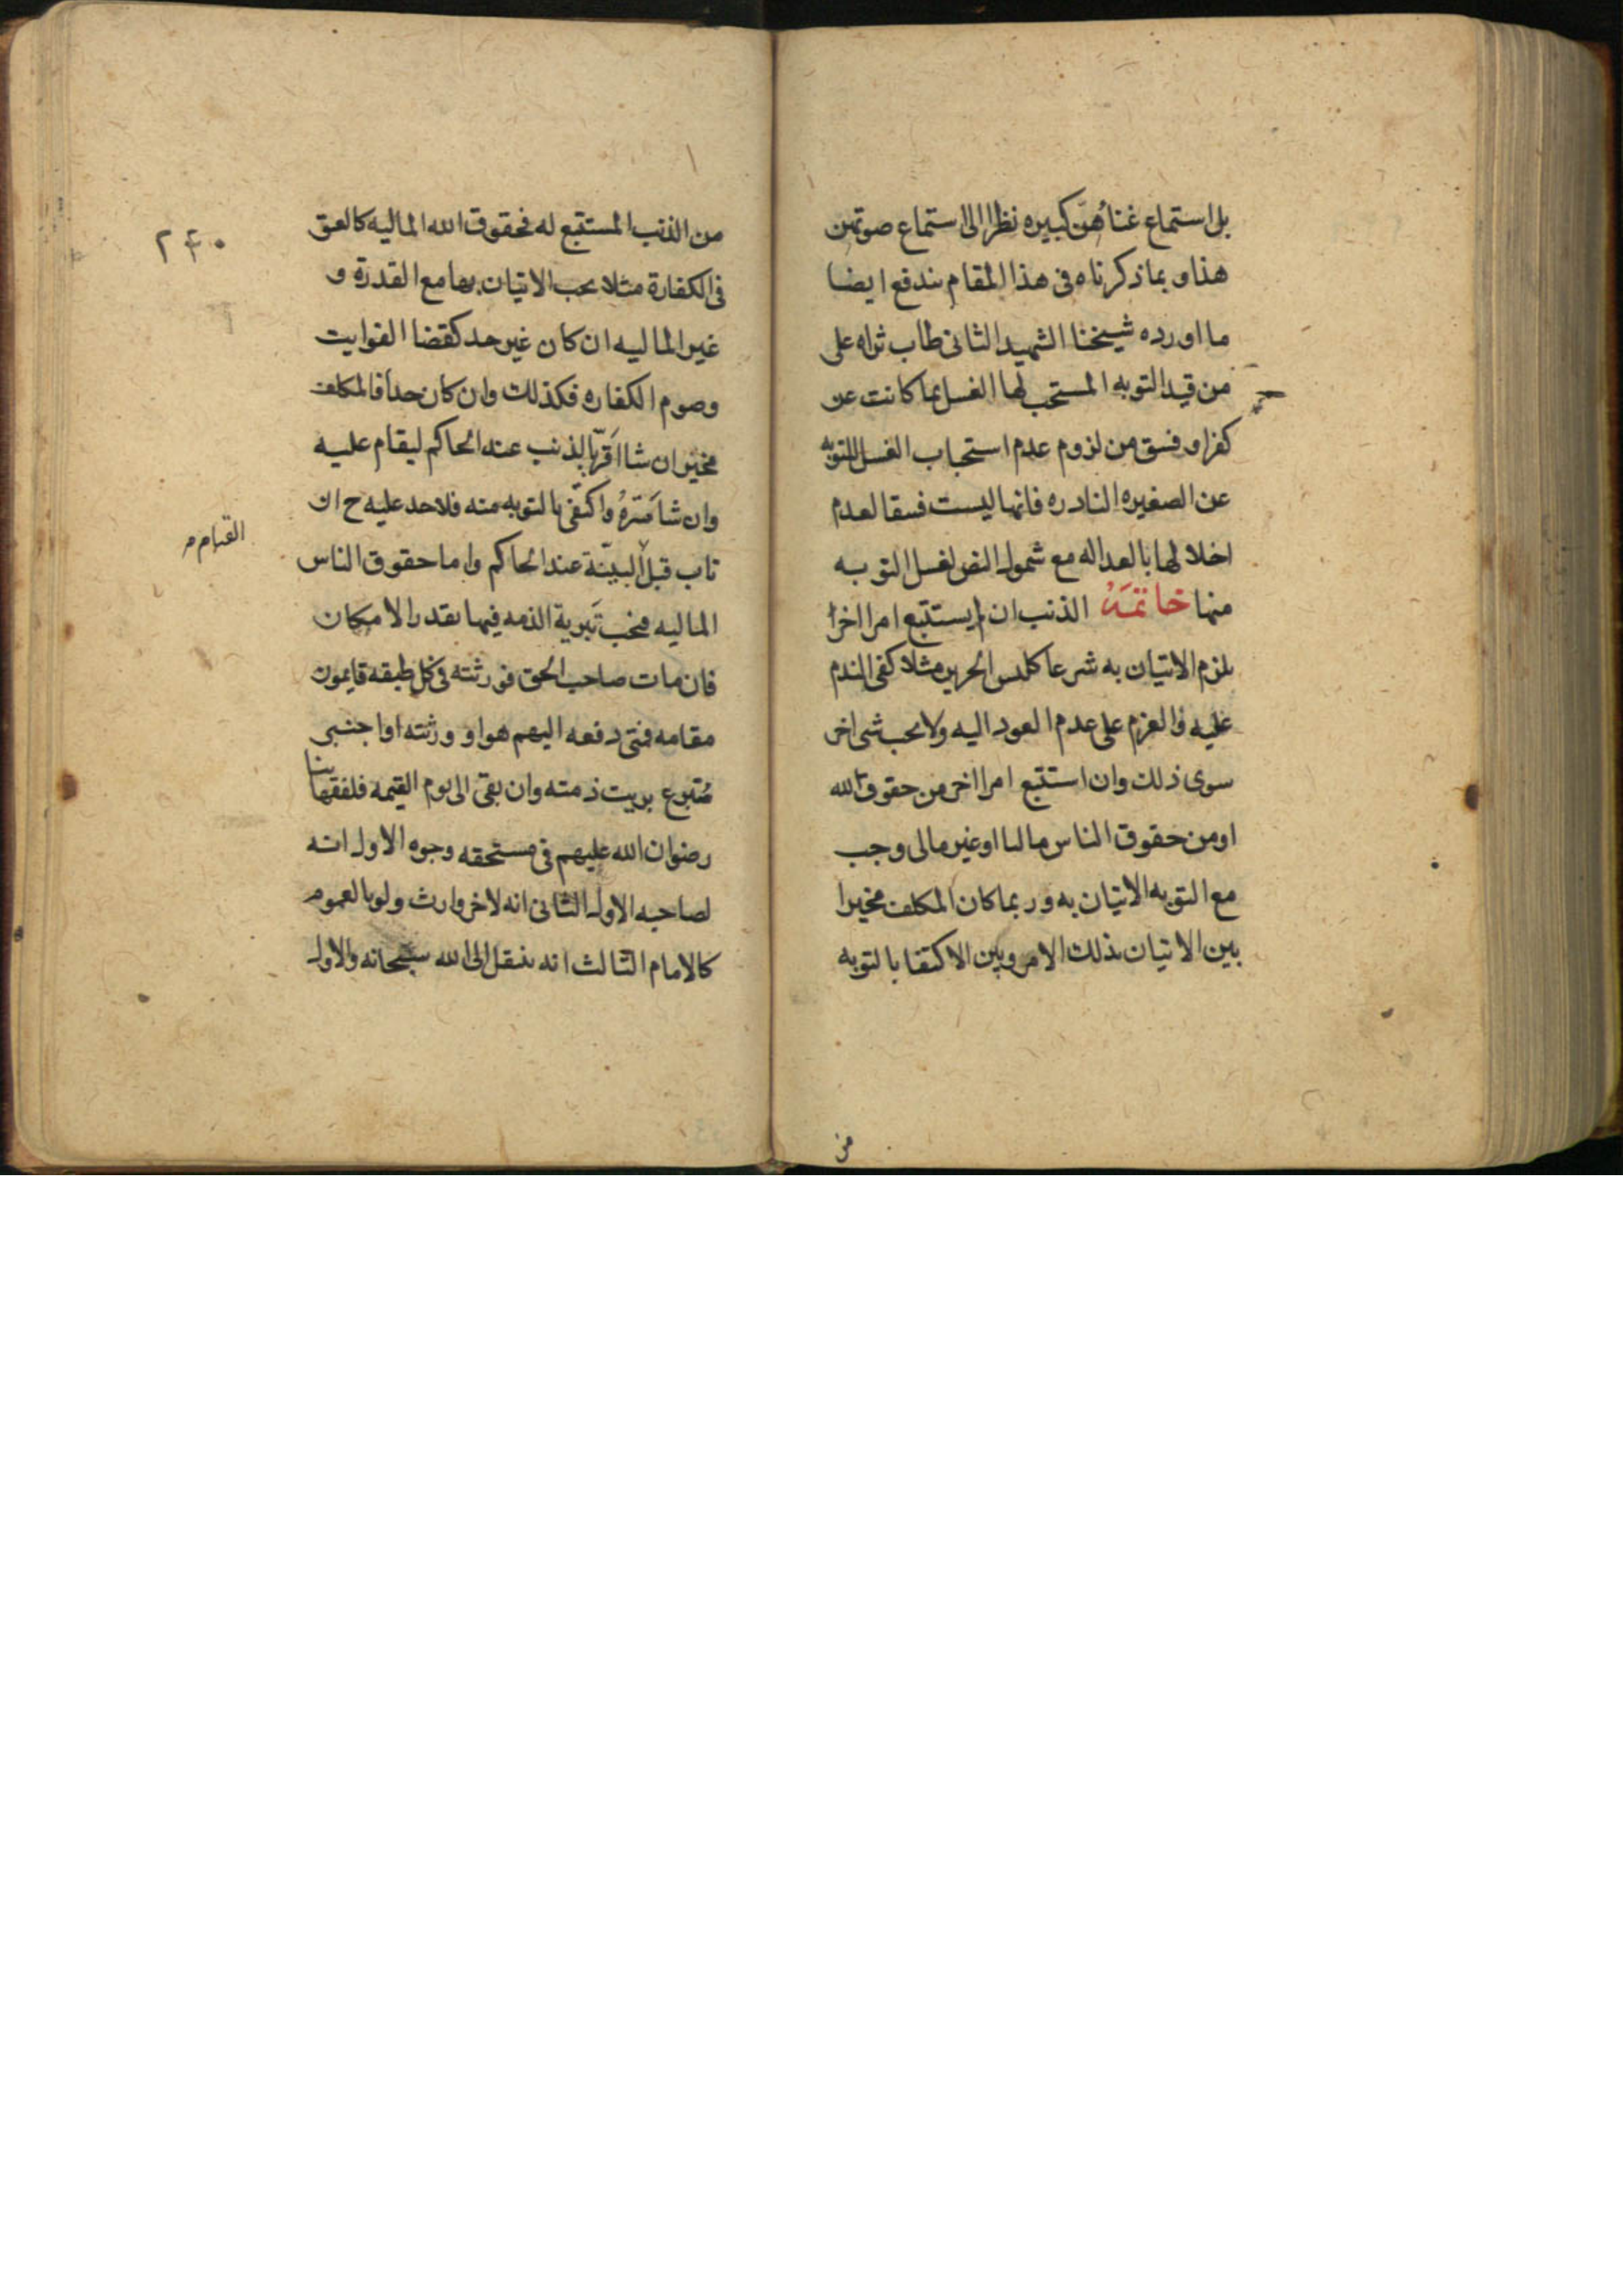 بل استماع غنائهنّ كبيره نظرا الى استماع صوتهن
هذا و بما ذكرناه فى هذا المقام يندفع ايضا
ما اورده شيخنا الشهيد الثانى طاب ثراه على
من قيد التوبه المستحب لها الغسل بما كانت عن
كفر او فسق من لزوم عدم استحباب الغسل للتوبه
عن الصغيره النادره فانها ليست فسقا لعدم
اخلالها بالعداله مع شمول النص لغسل التوبه
منها خاتمَةٌ الذنب ان لم يستتبع امرا اخرا
يلزم الاتيان به شرعا كلبس الحرير مثلا كفى الندم
عليه والعزم على عدم العود اليه ولا يجب شى اخر
سوى ذلك وان استتبع امرا اخر من حقوق الله
او من حقوق الناس ماليا او غير مالى وجب
مع التوبه الاتيان به و ربما كان المكلف مخيرا
بين الاتيان بذلك الامر وبين الاكتفا بالتوبه
من
٢۴٠
من الذنب المستتبع له فحقوق الله الماليه كالعتق
فى الكفارة مثلا يجب الاتيان بها مع القدرة و
غير الماليه ان كان غير حد كقضا الفوايت
وصوم الكفاره فكذلك وان كان حداً فالمكلف
مخيّر ان شا اَقَرّ بالذنب عند الحاكم ليقام عليه
وان شا سَتَرَهُ واكتفى بالتوبه منه فلا حد عليه ح ان
تاب قبل البيّنة عند الحاكم واما حقوق الناس
الماليه فيجب تَبرية الذمه فيها بقدر الامكان
فان مات صاحب الحق فورثته فى كل طبقه قايمون
مقامه فمتى دفعه اليهم هو او ورثته او اجنبى
مُتبرع بريت ذمته وان بقى الى يوم القيمه فلفقهائنا
رضوان الله عليهم فى مستحقه وجوه الاول انه
لصاحبه الاول الثانى انه لاخر وارث ولو بالعموم
كالامام الثالث انه ينتقل الى الله سبحانه والاول